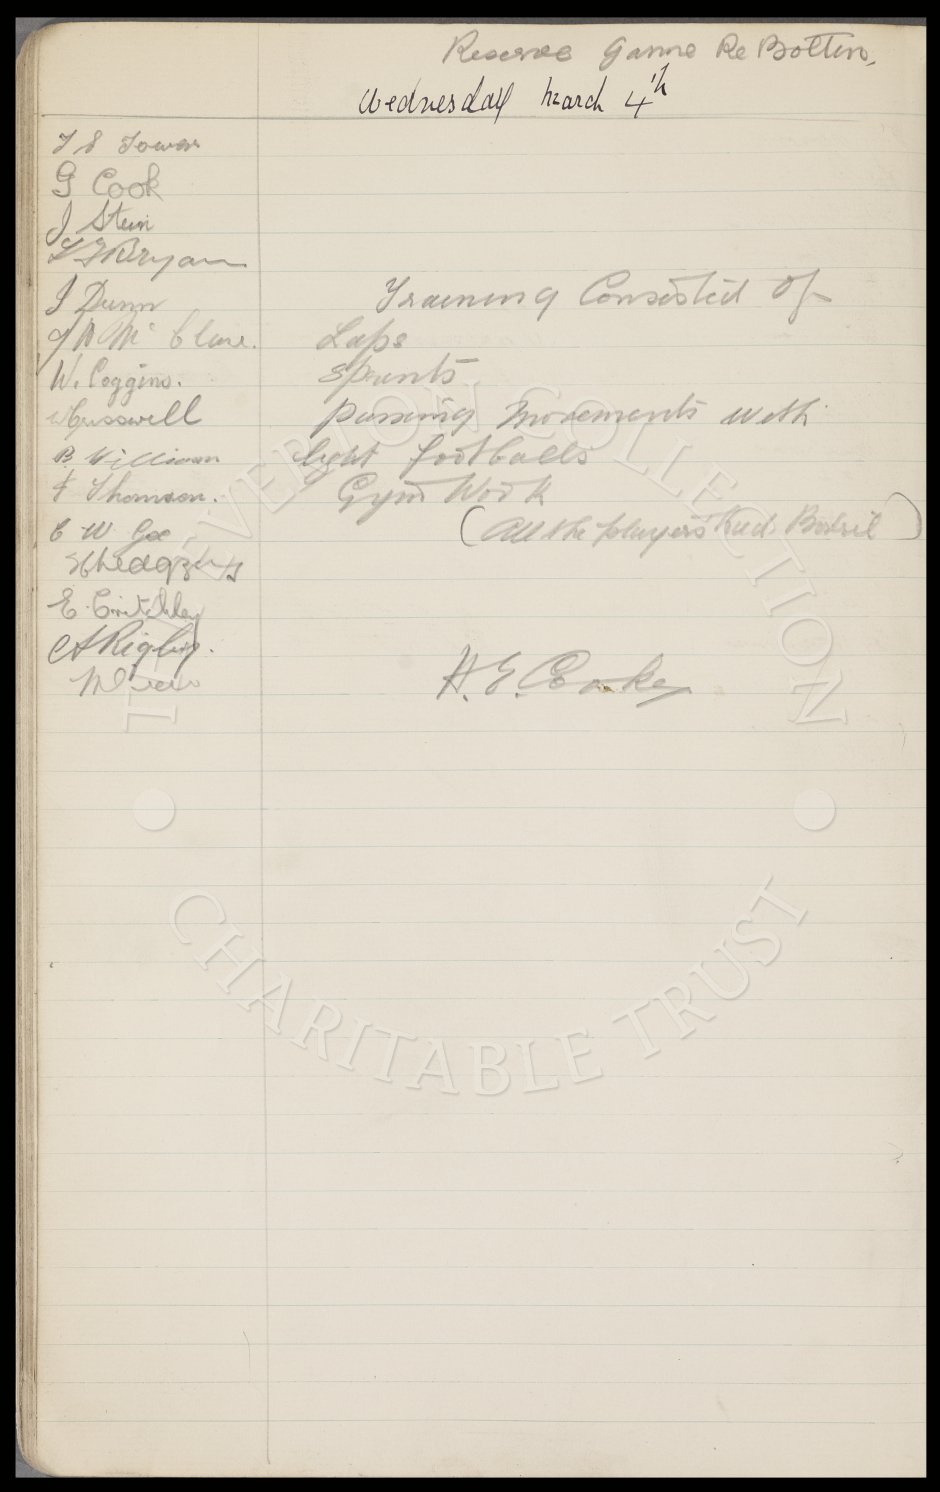 Reserve Game Re Bolton.
Wednesday March 4th
T S
G Cook
J Stein
Bryan
J Dunn
Mc Clure.
W. Coggins.
W Cresswell
B Williams
F Thomson.
C W Gee
E. Critchley
A Rigby.
Training Consisted Of
Laps
Sprints
Passing Movements with
light footballs
Gym Work
(All the players had Bovril)
H. E. Cooke
THE EVERTON COLLECTION
CHARITABLE TRUST